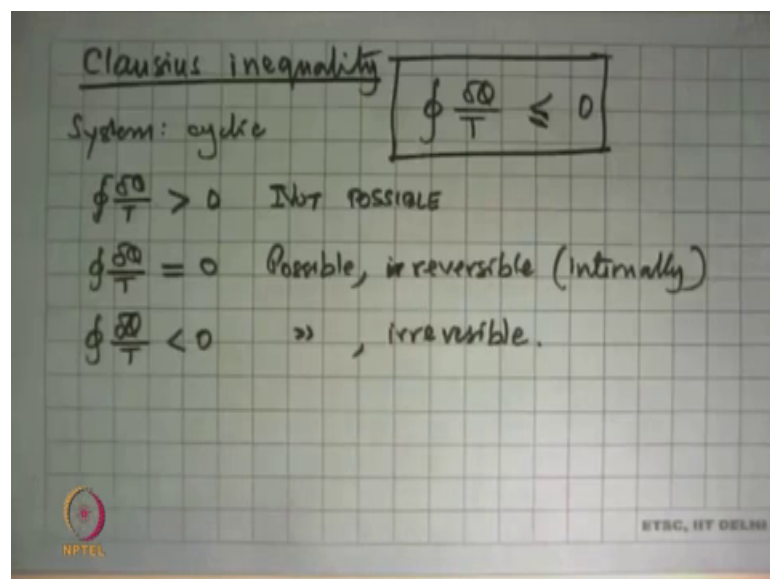 Clausius inequality
∮ δQ/T ≤ 0
System: cyclic
∮ δQ/T > 0 NOT POSSIBLE
∮ δQ/T = 0 Possible, reversible (internally)
∮ δQ/T < 0 〃 , irreversible.
NPTEL
ETSC, IIT DELHI